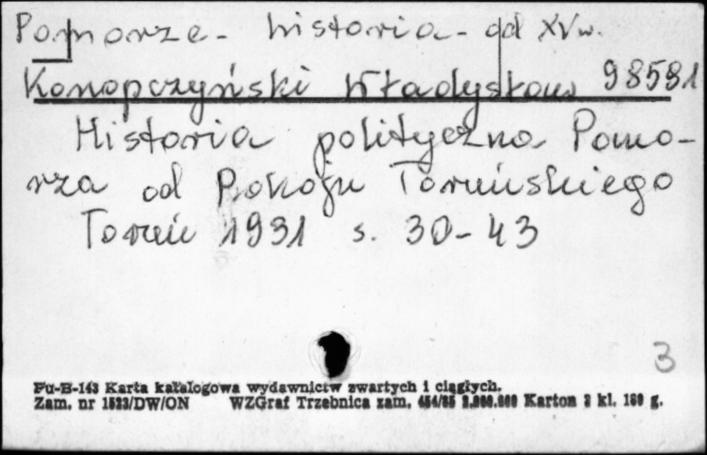 Pomorze - historia - od XV w.
Konopczyński Władysław 98581
Historia polityczna Pomo-
rza od Pokoju Toruńskiego
Toruń 1931 s. 30-43
3
Pu-B-143 Karta katalogowa wydawnictw zwartych i ciągłych.
Zam. nr 1523/DW/ON WZGraf Trzebnica zam. 454/85 Karton 3 kl. 180 g.